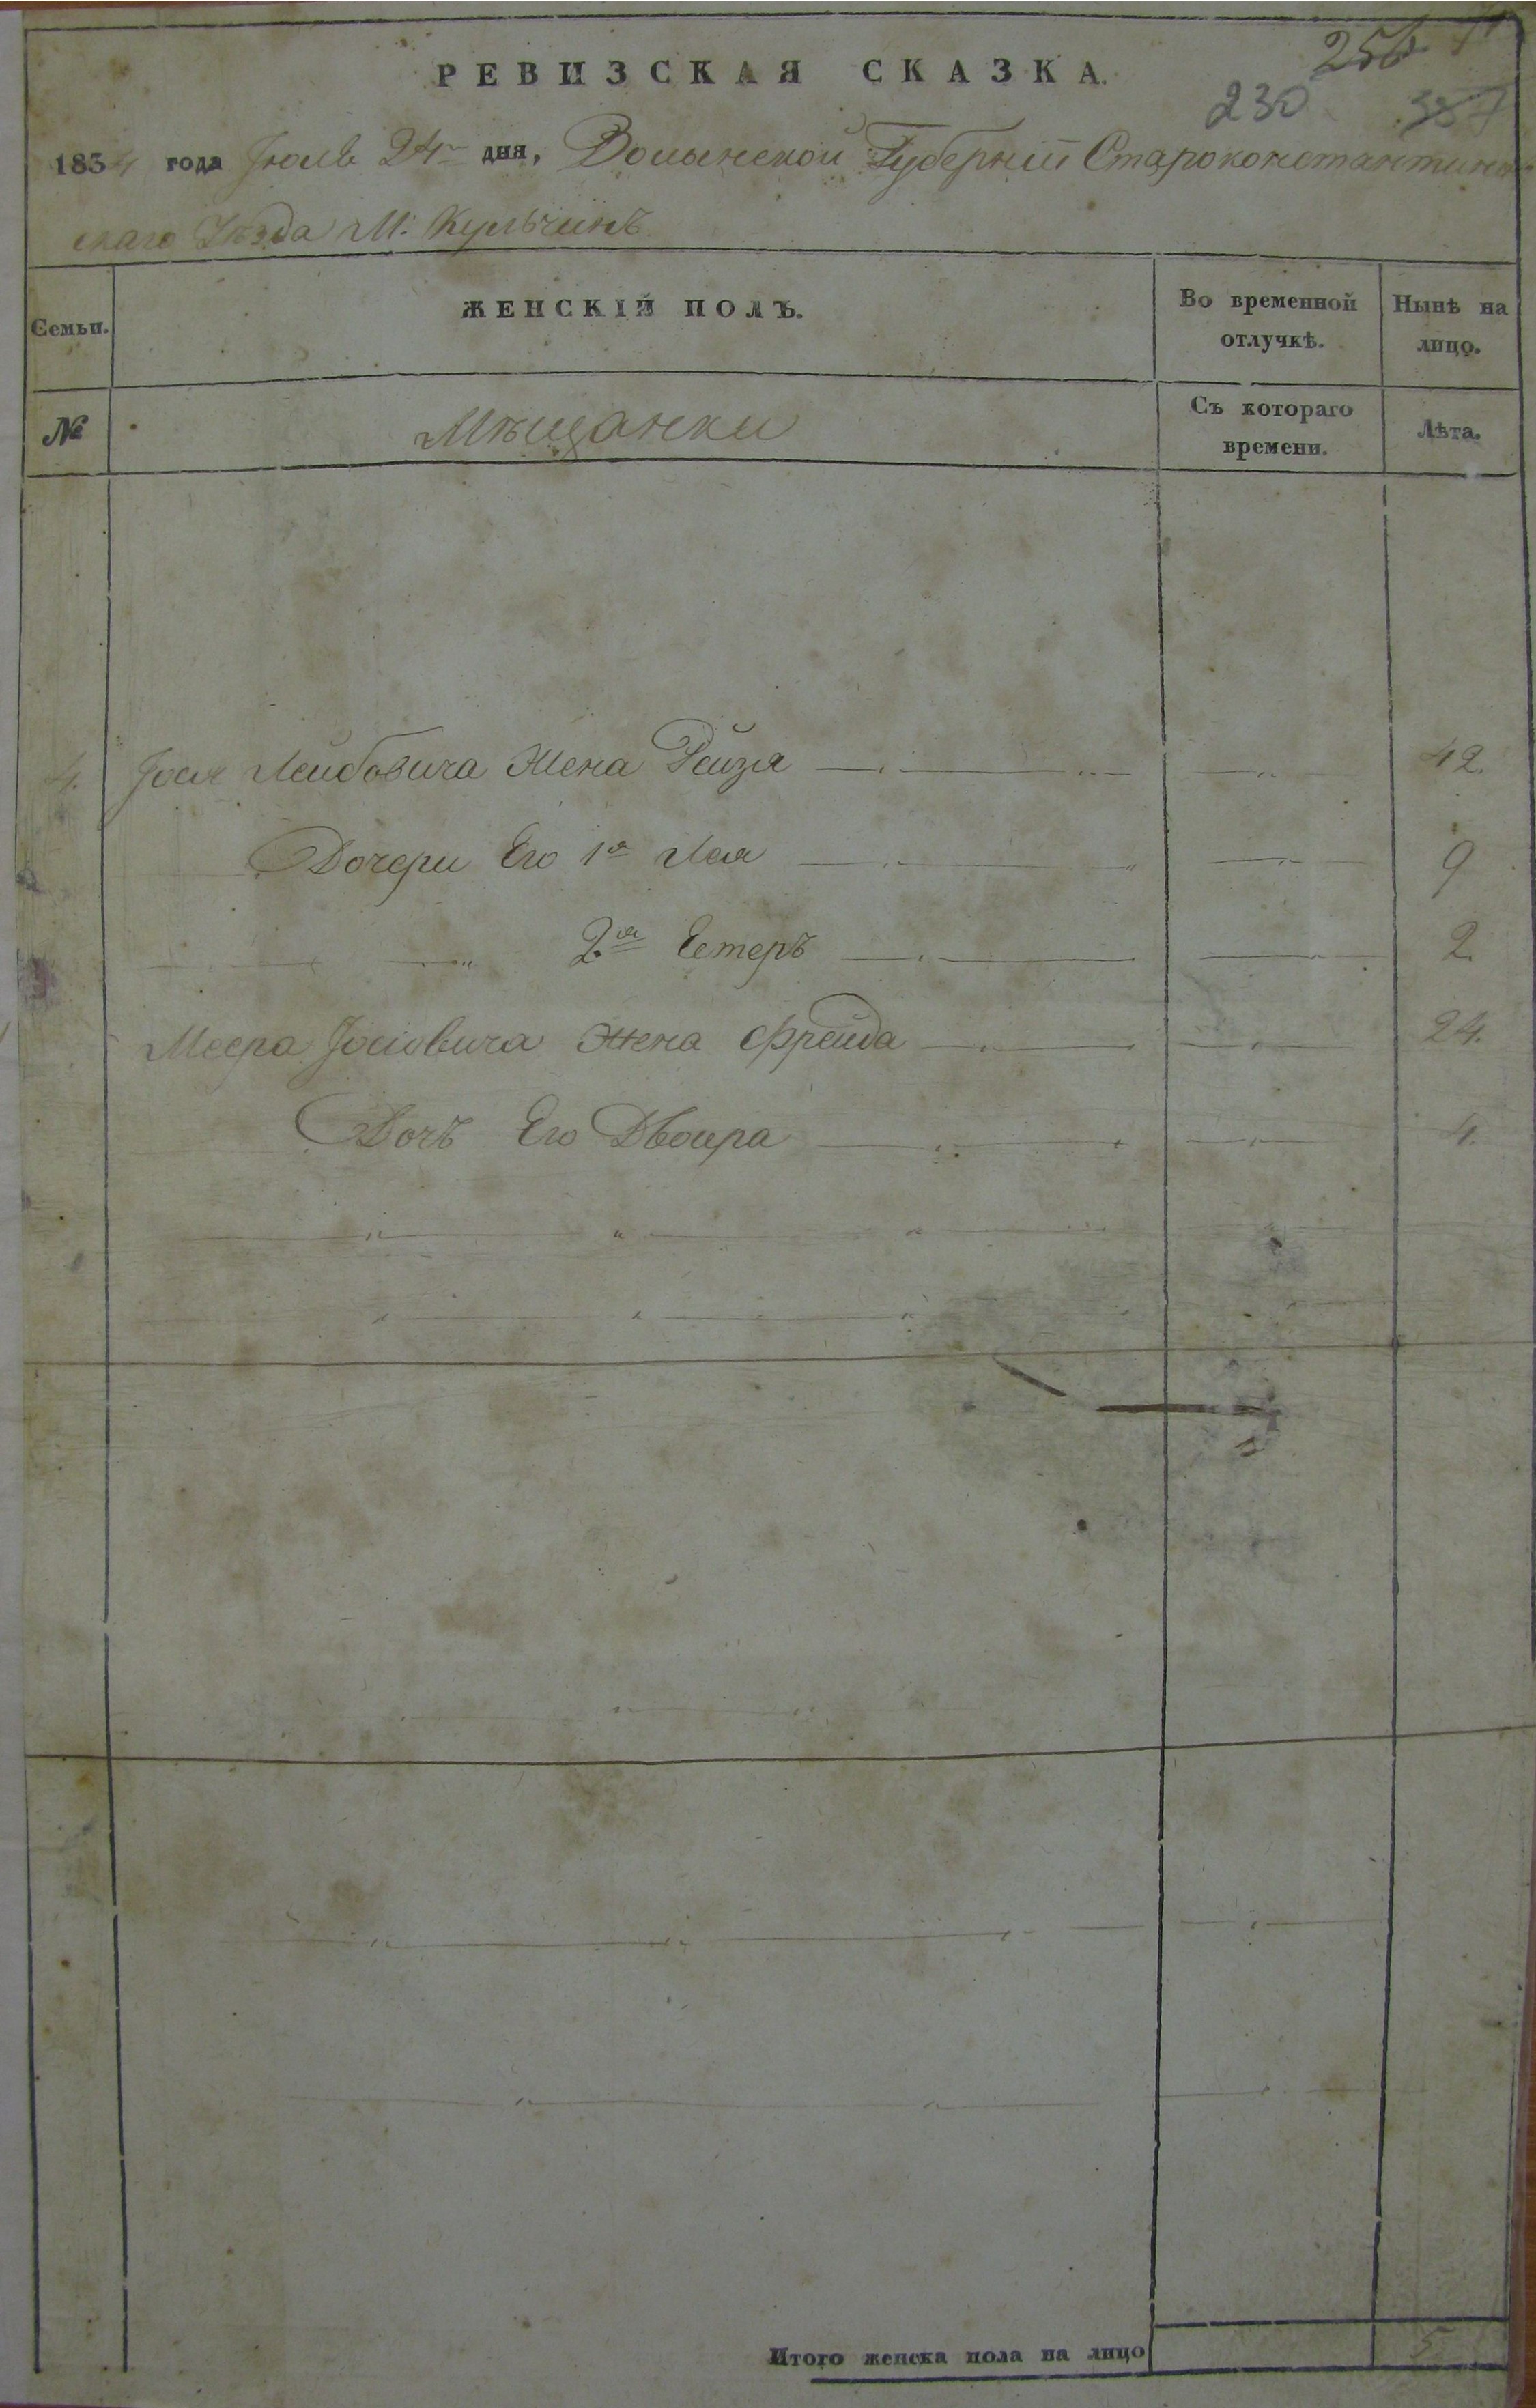 256
РЕВИЗСКАЯ СКАЗКА.
230
1834 года Іюля 24 дня, Волынской Губерніи Староконстантинов
скаго Уѣзда М: Кульчинъ
Семьи.
ЖЕНСКІЙ ПОЛЪ.
Во временной отлучкѣ.
Нынѣ на лицо.
№
Мѣщанки
Съ котораго времени.
Лѣта.
4. Іося Лейбовича Жена Рейзя 42.
Дочери Его 1я Лея 9
2я Естеръ 2.
Меера Іосіовича Жена Фрейда 24.
Дочъ Его Двоира 4.
Итого женска пола на лицо 5